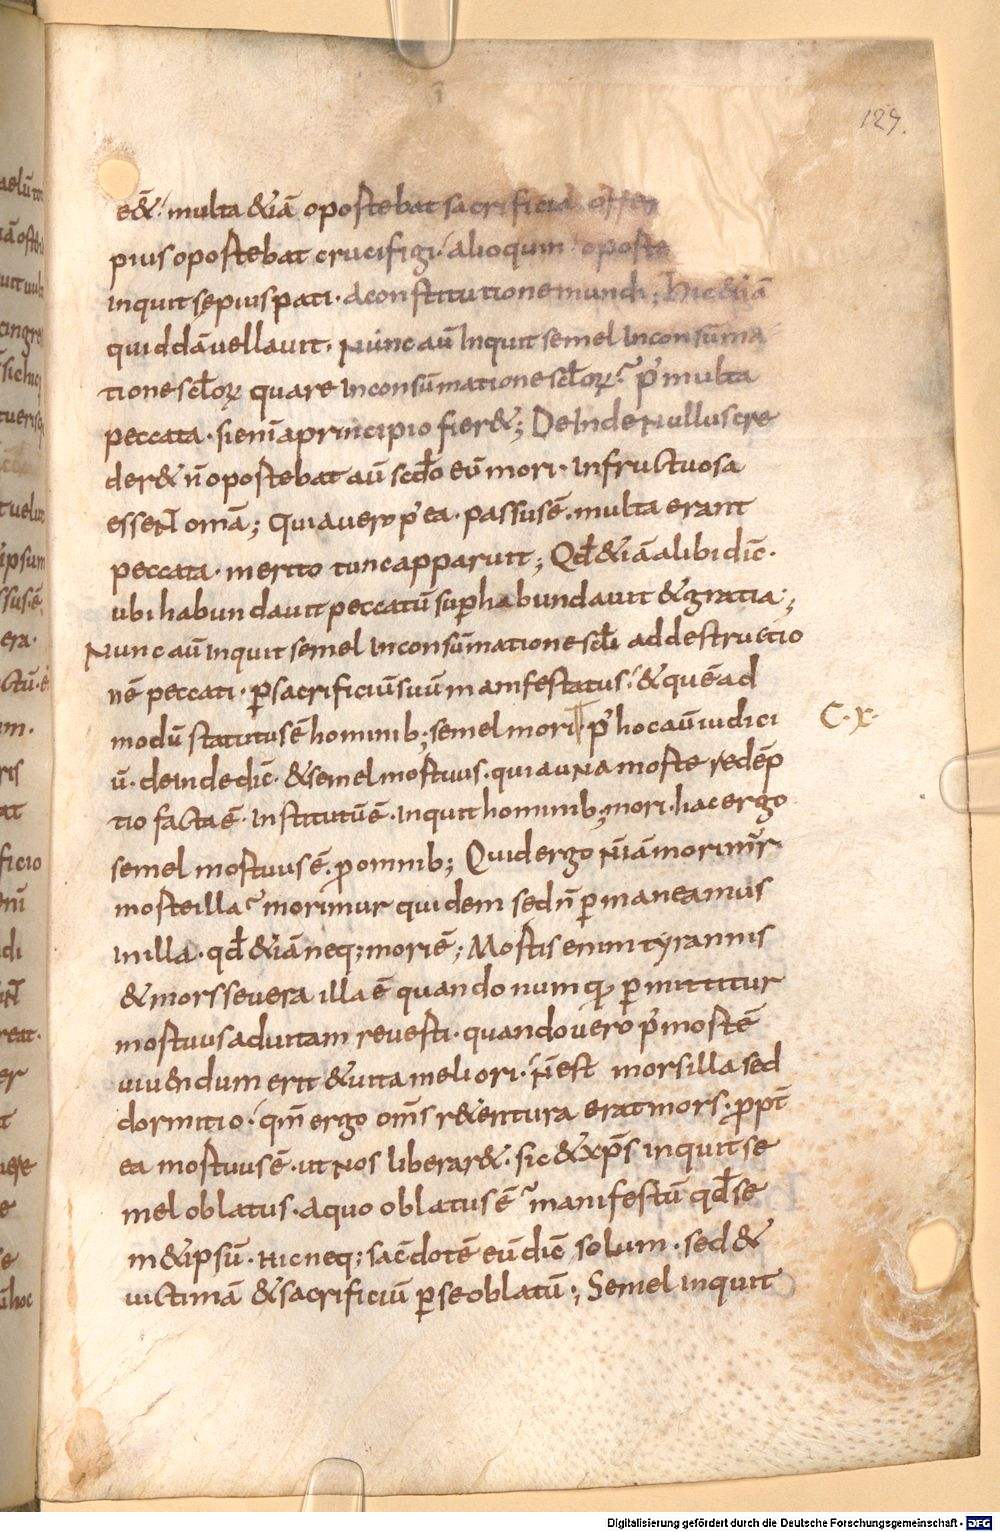 129.
e&̄. multa &iā oportebat sacrificia offerri
pius oportebat crucifigi. alioquin oporte
inquit sepius pati. a constitutione mundi; Hic &iā
quiddā vellavit. Nunc aū Inquit semel Inconsūma
tione scl̄oꝝ quare Inconsūmatione scl̄oꝝ? p̄ multa
peccata. si eniā principio fier&; Deinde Nullus cre
der& n̄ oportebat aū scd̄o eū mori. Infructuosa
essent̄ om̄a; Quia vero p̄ ea. passus ē. multa erant
peccata. merito tunc apparuit; Qd̄ &iā alibi dic̄.
ubi habundavit peccatū suꝑhabundavit & gratia;
Nunc aū inquit semel Inconsūmatione scl̄i ad destructio
nē peccati. ꝑ sacrificiū suū manifestatus. & quē ad
modū statutus ē hominib; semel mori. p̄ hoc aū iudici
C. X.
ū. deinde dic̄. & semel mortuus. quia una morte redēp
tio facta ē. Institutū ē. Inquit hominib; mori. hac ergo
semel mortuus ē. ꝓ omnib; Quid ergo n̄ iā morimur
morte illa? morimur quidem sed n̄ ꝑmaneamus
in illa. qd̄ &iā neq; moriē; Mortis enim tyrannis
& mors severa illa ē quando numqꝫ ꝑmittitur
mortuus ad vitam reverti. quando vero p̄ mortē
vivendum erit & vita meliori. n̄ est mors illa sed
dormitio. qm̄ ergo om̄s r&entura erat mors. ꝓpt̄
ea mortuus ē. ut Nos liberar&. sic & xp̄s inquit se
mel oblatus. a quo oblatus ē? manifestū qd̄ se
m&ipsū. Hic neq; sac̄dotē eū dic̄ solum. sed &
victimā & sacrificiū ꝑ se oblatū; Semel inquit
Digitalisierung gefördert durch die Deutsche Forschungsgemeinschaft - DFG